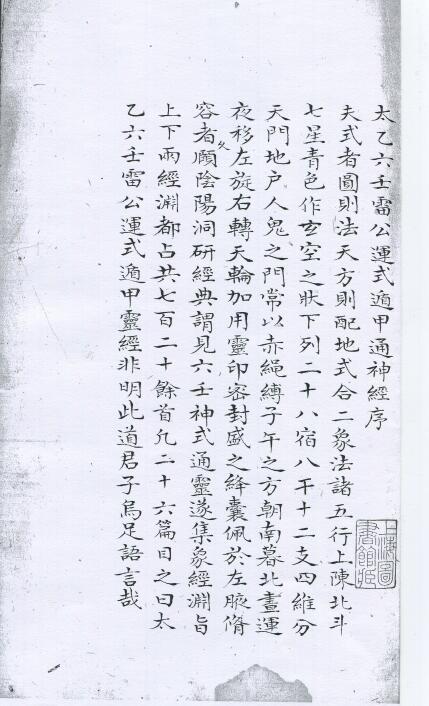 太乙六壬雷公運式遁甲通神經序
夫式者圓則法天方則配地式合二象法諸五行上陳北斗
七星青色作玄空之狀下列二十八宿八干十二支四維分
天門地户人鬼之門常以赤繩縛子午之方朝南暮北晝運
夜移左旋右轉天輪加用靈印密封盛之絳囊佩於左腋脩
容者頋陰陽洞研經典謂見六壬神式通靈遂集象經淵旨
上下兩經淵都占共七百二十餘首凡二十六篇目之曰太
乙六壬雷公運式遁甲靈經非明此道君子烏足語言哉
上海圖
書館藏